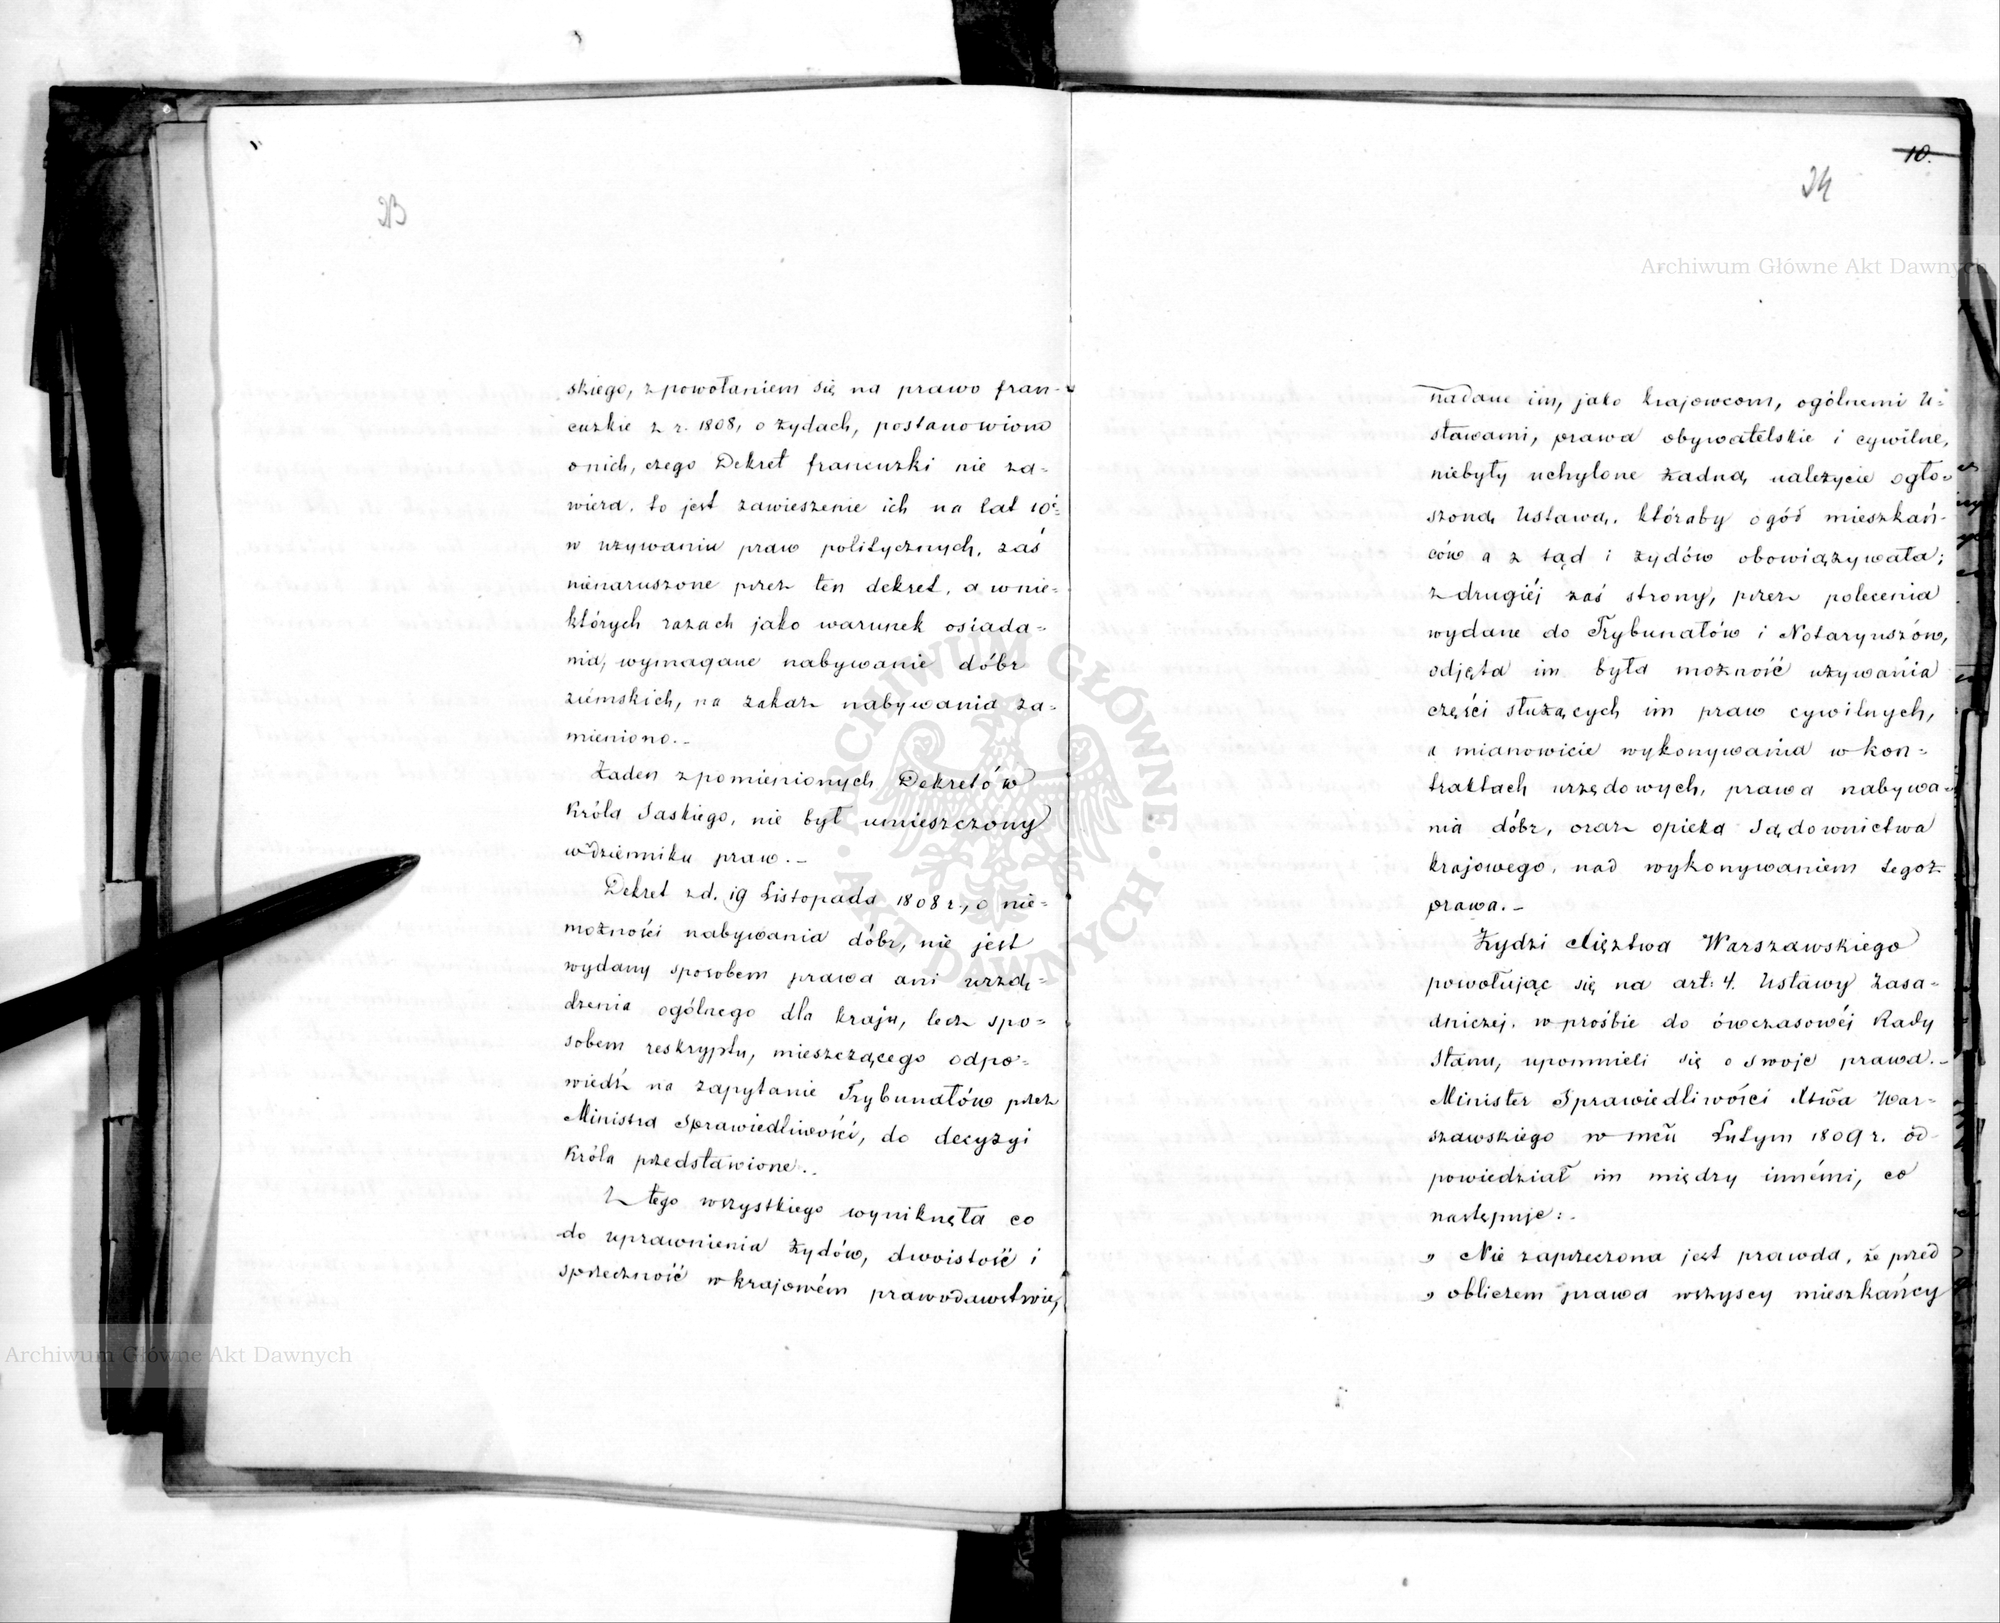 23
skiego, z powołaniem się na prawo fran-
cuzkie z r. 1808, o żydach, postanowiono
o nich, czego Dekret francuzki nie za-
wiera. to jest zawieszenie ich na lat 10ć
w używaniu praw politycznych, zaś
nienaruszone przez ten dekret, a w nie-
których razach jako warunek osiada-
nia, wymagane nabywanie dóbr
ziemskich, na zakaz nabywania za-
mieniono.-
Żaden z pomienionych Dekretów
Króla Saskiego, nie był umieszczony
w dzienniku praw.-
Dekret z d. 19 Listopada 1808 r., o nie-
możności nabywania dóbr, nie jest
wydany sposobem prawa ani urzą-
dzenia ogólnego dla kraju, lecz spo-
sobem reskryptu, mieszczącego odpo-
wiedź na zapytanie Trybunałów przez
Ministra Sprawiedliwości, do decyzyi
Króla przedstawione.-
Z tego wszystkiego wyniknęła co
do uprawnienia Żydów, dwoistość i
sprzeczność w krajowém prawodawstwie,
10.
24
nadane im, jako krajowcom, ogólnemi U-
stawami, prawa obywatelskie i cywilne,
niebyły uchylone żadną należycie ogło-
szoną Ustawą, któraby ogół mieszkań-
ców a z tąd i żydów obowiązywała;
z drugiéj zaś strony, przez polecenia
wydane do Trybunałów i Notaryuszów,
odjęta im była możność używania
części służących im praw cywilnych,
a mianowicie wykonywania w kon-
traktach urzędowych, prawa nabywa-
nia dóbr, oraz opieka Sądownictwa
krajowego, nad wykonywaniem tegoż
prawa.-
Żydzi Xięztwa Warszawskiego
powołując się na art: 4. Ustawy Zasa-
dniczej, w prośbie do ówczasowéj Rady
Stanu, upomnieli się o swoje prawa.-
Minister Sprawiedliwości Xtwa War-
szawskiego w mcu Lutym 1809 r. od-
powiedział im między innémi, co
następuje:-
„ Nie zaprzeczona jest prawda, że przed
„ obliczem prawa wszyscy mieszkańcy
Archiwum Główne Akt Dawnych
ARCHIWUM GŁÓWNE AKT DAWNYCH
Archiwum Główne Akt Dawnych